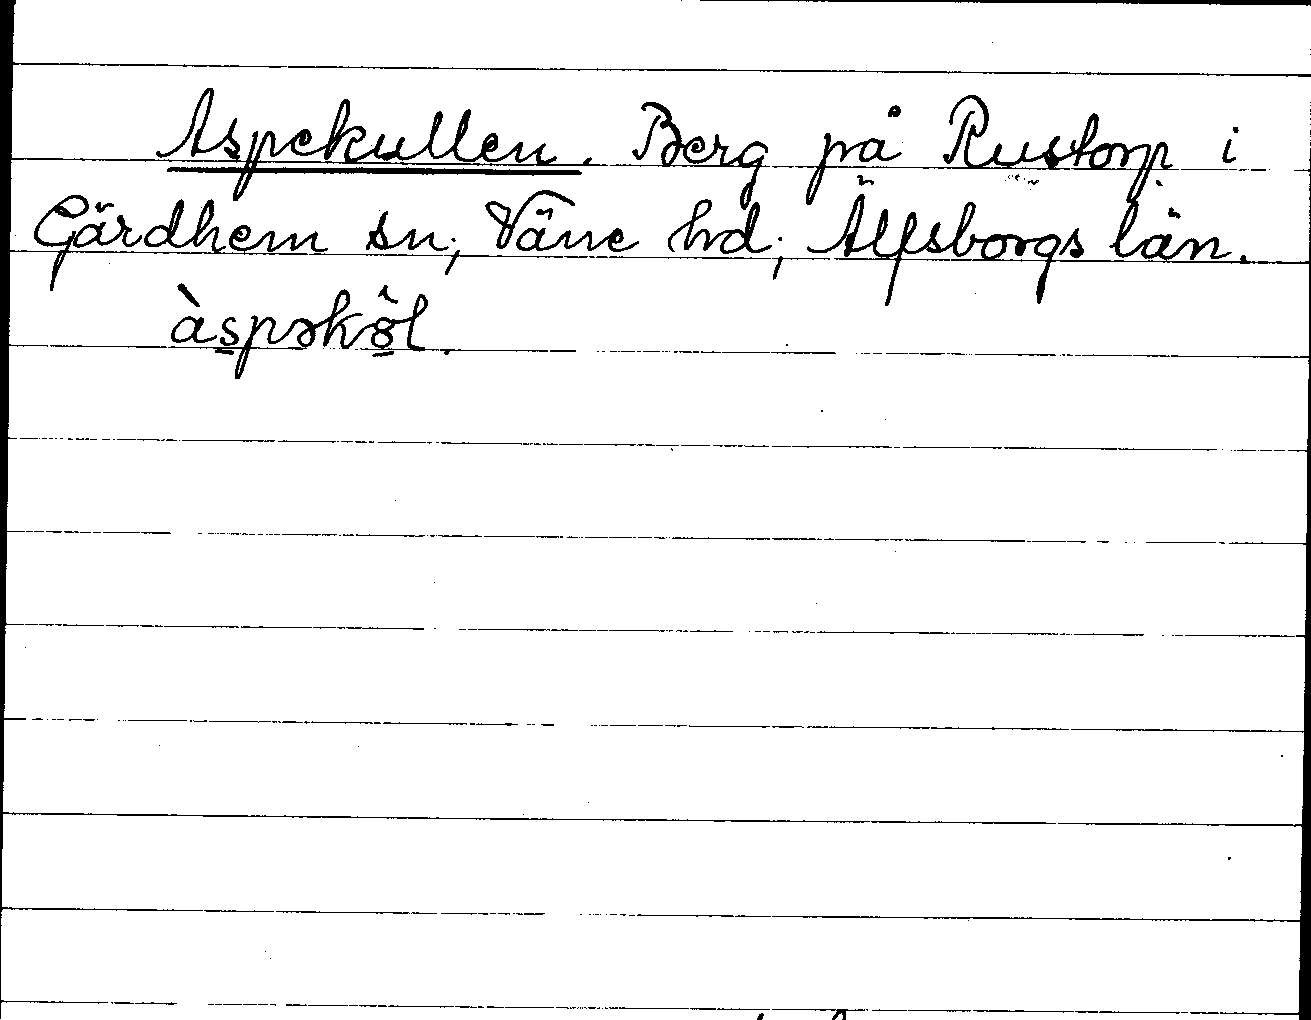 Aspekullen. Berg på Rustorp i
Gärdhem sn; Väne hd; Älfsborgs län.
àspəköl.